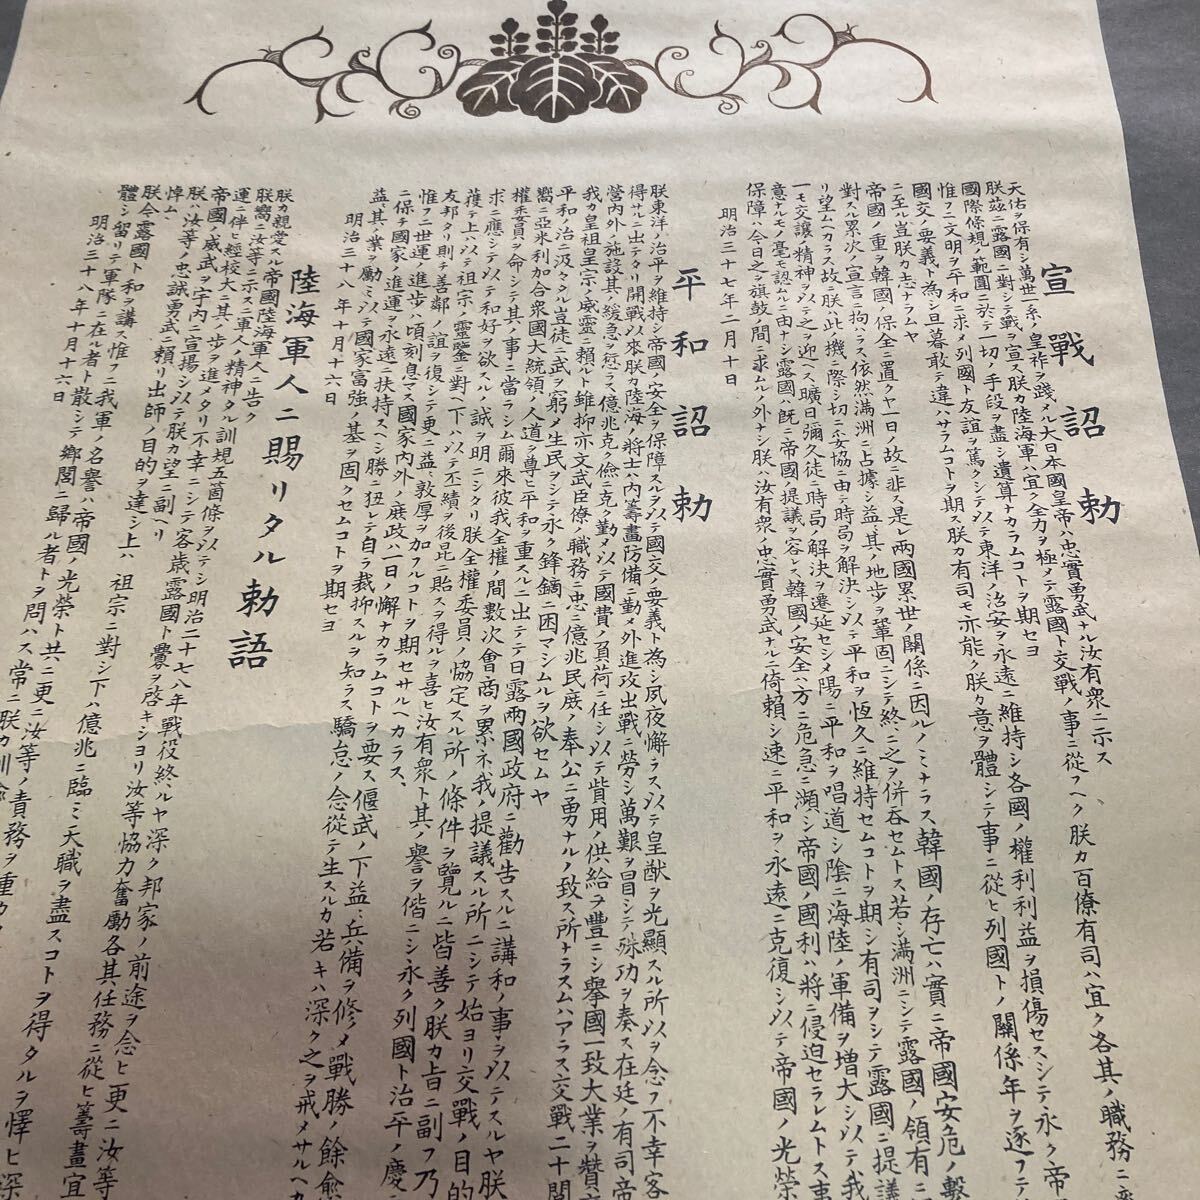 宣戰詔勅
天佑ヲ保有シ萬世一系ノ皇祚ヲ踐メル大日本國皇帝ハ忠實勇武ナル汝有衆ニ示ス
朕茲ニ露國ニ對シテ戰ヲ宣ス朕カ陸海軍ハ宜ク全力ヲ極メテ露國ト交戰ノ事ニ從フヘク朕カ百僚有司ハ宜ク各其ノ職務ニ
國際條規ノ範圍ニ於テ一切ノ手段ヲ盡シ遺算ナカラムコトヲ期セヨ
惟フニ文明ヲ平和ニ求メ列國ト友誼ヲ篤クシテ以テ東洋ノ治安ヲ永遠ニ維持シ各國ノ權利利益ヲ損傷セスシテ永ク帝
國交ノ要義ト為シ旦暮敢テ違ハサラムコトヲ期ス朕カ有司モ亦能ク朕カ意ヲ體シテ事ニ從ヒ列國トノ關係年ヲ逐フテ
ニ至ル豈朕カ志ナラムヤ
帝國ノ重ヲ韓國ノ保全ニ置クヤ一日ノ故ニ非ス是レ兩國累世ノ關係ニ因ルノミナラス韓國ノ存亡ハ實ニ帝國安危ノ繫
對スル累次ノ宣言ニ拘ハラス依然滿洲ニ占據シ益其ノ地步ヲ鞏固ニシテ終ニ之ヲ併吞セムトス若シ滿洲ニシテ露國ノ領有ニ
リ望ムヘカラス故ニ朕ハ此ノ機ニ際シ切ニ妥協ニ由テ時局ヲ解決シ以テ平和ヲ恆久ニ維持セムコトヲ期シ有司ヲシテ露國ニ提議
一モ交讓ノ精神ヲ以テ之ヲ迎ヘス曠日彌久徒ニ時局ノ解決ヲ遷延セシメ陽ニ平和ヲ唱道シ陰ニ海陸ノ軍備ヲ增大シ以テ我
意ナルモノ毫モ認ムルニ由ナシ露國ハ既ニ帝國ノ提議ヲ容レス韓國ノ安全ハ方ニ危急ニ瀕シ帝國ノ國利ハ將ニ侵迫セラレムトス事
保障ハ今日之ヲ旗鼓ノ間ニ求ムルノ外ナシ朕ハ汝有衆ノ忠實勇武ナルニ倚賴シ速ニ平和ヲ永遠ニ克復シ以テ帝國ノ光榮
明治三十七年二月十日
平和詔勅
朕東洋ノ治平ヲ維持シ帝國ノ安全ヲ保障スルヲ以テ國交ノ要義ト為シ夙夜懈ラス以テ皇猷ヲ光顯スル所以ヲ念フ不幸客
得サルニ出テタリ開戰以來朕カ陸海ノ將士ハ內籌畫防備ニ勤メ外進攻出戰ニ勞シ萬艱ヲ冒シテ殊功ヲ奏ス在廷ノ有司帝
營內外ノ施設其ノ緩急ヲ愆ラス億兆克ク儉ニ克ク勤メ以テ國費ノ負荷ニ任シ以テ貲用ノ供給ヲ豐ニシ擧國一致大業ヲ贊
我カ皇祖皇宗ノ威靈ニ賴ルト雖抑亦文武臣僚ノ職務ニ忠ニ億兆民庶ノ奉公ニ勇ナルノ致ス所ナラスムハアラス交戰二十閱
平和ノ治ニ汲々タル豈徒ニ武ヲ窮メ生民ヲシテ永ク鋒鏑ニ困マシムルヲ欲セムヤ
嚮ニ亞米利加合衆國大統領ノ人道ヲ尊ヒ平和ヲ重スルニ出テテ日露兩國政府ニ勸告スルニ講和ノ事ヲ以テスルヤ朕
權委員ヲ命シテ其ノ事ニ當ラシム爾來彼我全權ノ間數次會商ヲ累ネ我ノ提議スル所ニシテ始ヨリ交戰ノ目的
ホニ應シ以テ和好ヲ欲スルノ誠ヲ明ニシタリ朕全權委員ノ協定スル所ノ條件ヲ覽ルニ皆善ク朕カ旨ニ副フ乃
獲テ上ハ以テ祖宗ノ靈鑒ニ對ヘ下ハ以テ丕績ヲ後昆ニ貽スヲ得ルヲ喜ヒ汝有衆ト其ノ譽ヲ偕ニシ永ク列國ト治平ノ慶
友邦タリ則チ善鄰ノ誼ヲ復シテ更ニ益〻敦厚ヲ加フルコトヲ期セサルヘカラス
惟フニ世運ノ進步ハ頃刻息マス國家內外ノ庶政ハ一日ノ懈ナカラムコトヲ要ス偃武ノ下益〻兵備ヲ修メ戰勝ノ餘愈
ニ保チ國家ノ進運ヲ永遠ニ扶持スヘシ勝ニ狃レテ自ラ裁抑スルヲ知ラス驕怠ノ念從テ生スルカ若キハ深ク之ヲ戒メサルヘカ
益〻其ノ業ヲ勵ミ以テ國家富強ノ基ヲ固クセムコトヲ期セヨ
明治三十八年十月十六日
陸海軍人ニ賜リタル勅語
朕カ親愛スル帝國陸海軍人ニ告ク
朕嚮ニ汝等ニ示スニ軍人ノ精神タル訓規五箇條ヲ以テシ明治二十七八年戰役終ルヤ深ク邦家ノ前途ヲ念ヒ更ニ汝等
運ニ伴ヒ經校大ニ其ノ步ヲ進メタリ不幸ニシテ客歲露國ト釁ヲ啓キシヨリ汝等協力奮勵各其任務ニ從ヒ籌畫宜
帝國ノ威武ヲ宇內ニ宣揚シ以テ朕カ望ニ副ヘリ
朕ハ汝等ノ忠誠勇武ニ賴リ出師ノ目的ヲ達シ上ハ祖宗ニ對シ下ハ億兆ニ臨ミ天職ヲ盡スコトヲ得タルヲ懌ヒ深
悼ム
朕今露國ト和ヲ講ス惟フニ我軍ノ名譽ハ帝國ノ光榮ト共ニ更ニ汝等ノ責務ヲ重カ
體シ留リテ軍隊ニ在ル者ト散シテ鄉閭ニ歸ル者トヲ問ハス常ニ朕カ訓
明治三十八年十月十六日